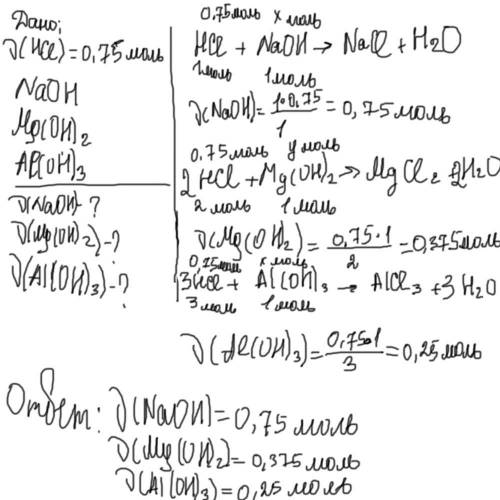 Дано:
ν(HCl) = 0,75 моль
NaOH
Mg(OH)2
Al(OH)3
ν(NaOH) - ?
ν(Mg(OH)2) - ?
ν(Al(OH)3) - ?
0,75 моль x моль
HCl + NaOH → NaCl + H2O
1 моль 1 моль
ν(NaOH) = 1·0,75/1 = 0,75 моль
0,75 моль y моль
2HCl + Mg(OH)2 → MgCl2 + 2H2O
2 моль 1 моль
ν(Mg(OH)2) = 0,75·1/2 = 0,375 моль
0,75 моль x моль
3HCl + Al(OH)3 → AlCl3 + 3H2O
3 моль 1 моль
ν(Al(OH)3) = 0,75·1/3 = 0,25 моль
Ответ: ν(NaOH) = 0,75 моль
ν(Mg(OH)2) = 0,375 моль
ν(Al(OH)3) = 0,25 моль